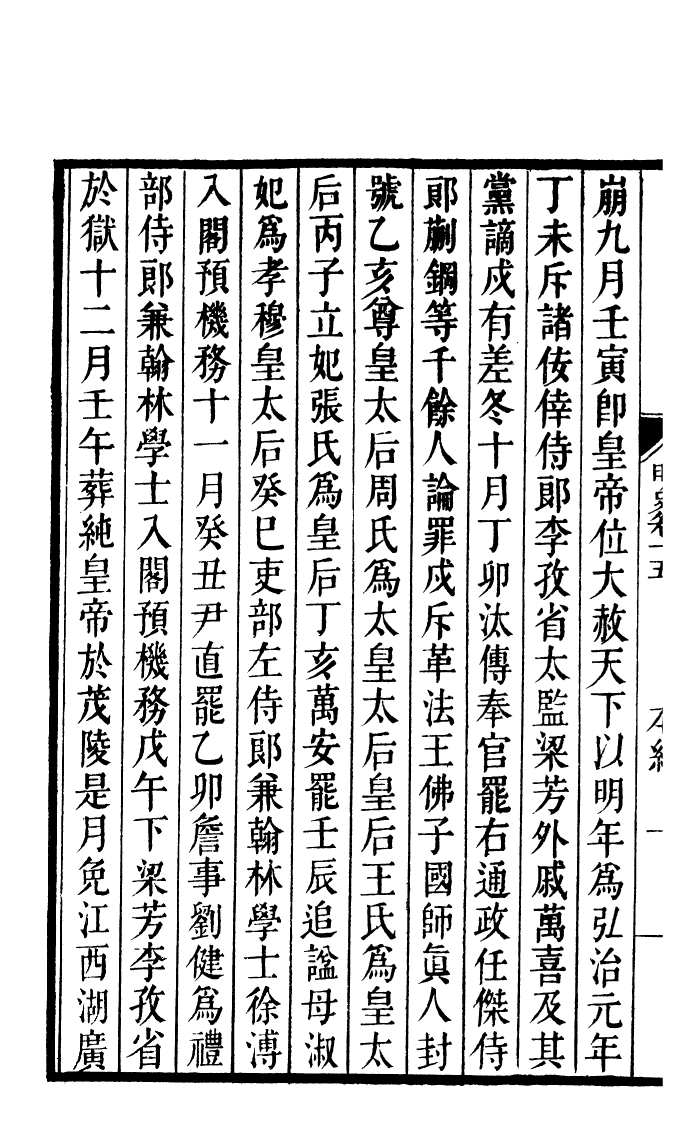 崩九月壬寅卽皇帝位大赦天下以明年爲弘治元年
丁未斥諸佞倖侍郎李孜省太監梁芳外戚萬喜及其
黨謫戍有差冬十月丁卯汰傳奉官罷右通政任傑侍
郎蒯鋼等千餘人論罪戍斥革法王佛子國師眞人封
號乙亥尊皇太后周氏爲太皇太后皇后王氏爲皇太
后丙子立妃張氏爲皇后丁亥萬安罷壬辰追諡母淑
妃爲孝穆皇太后癸巳吏部左侍郎兼翰林學士徐溥
入閣預機務十一月癸丑尹直罷乙卯詹事劉健爲禮
部侍郎兼翰林學士入閣預機務戊午下梁芳李孜省
於獄十二月壬午葬純皇帝於茂陵是月免江西湖廣